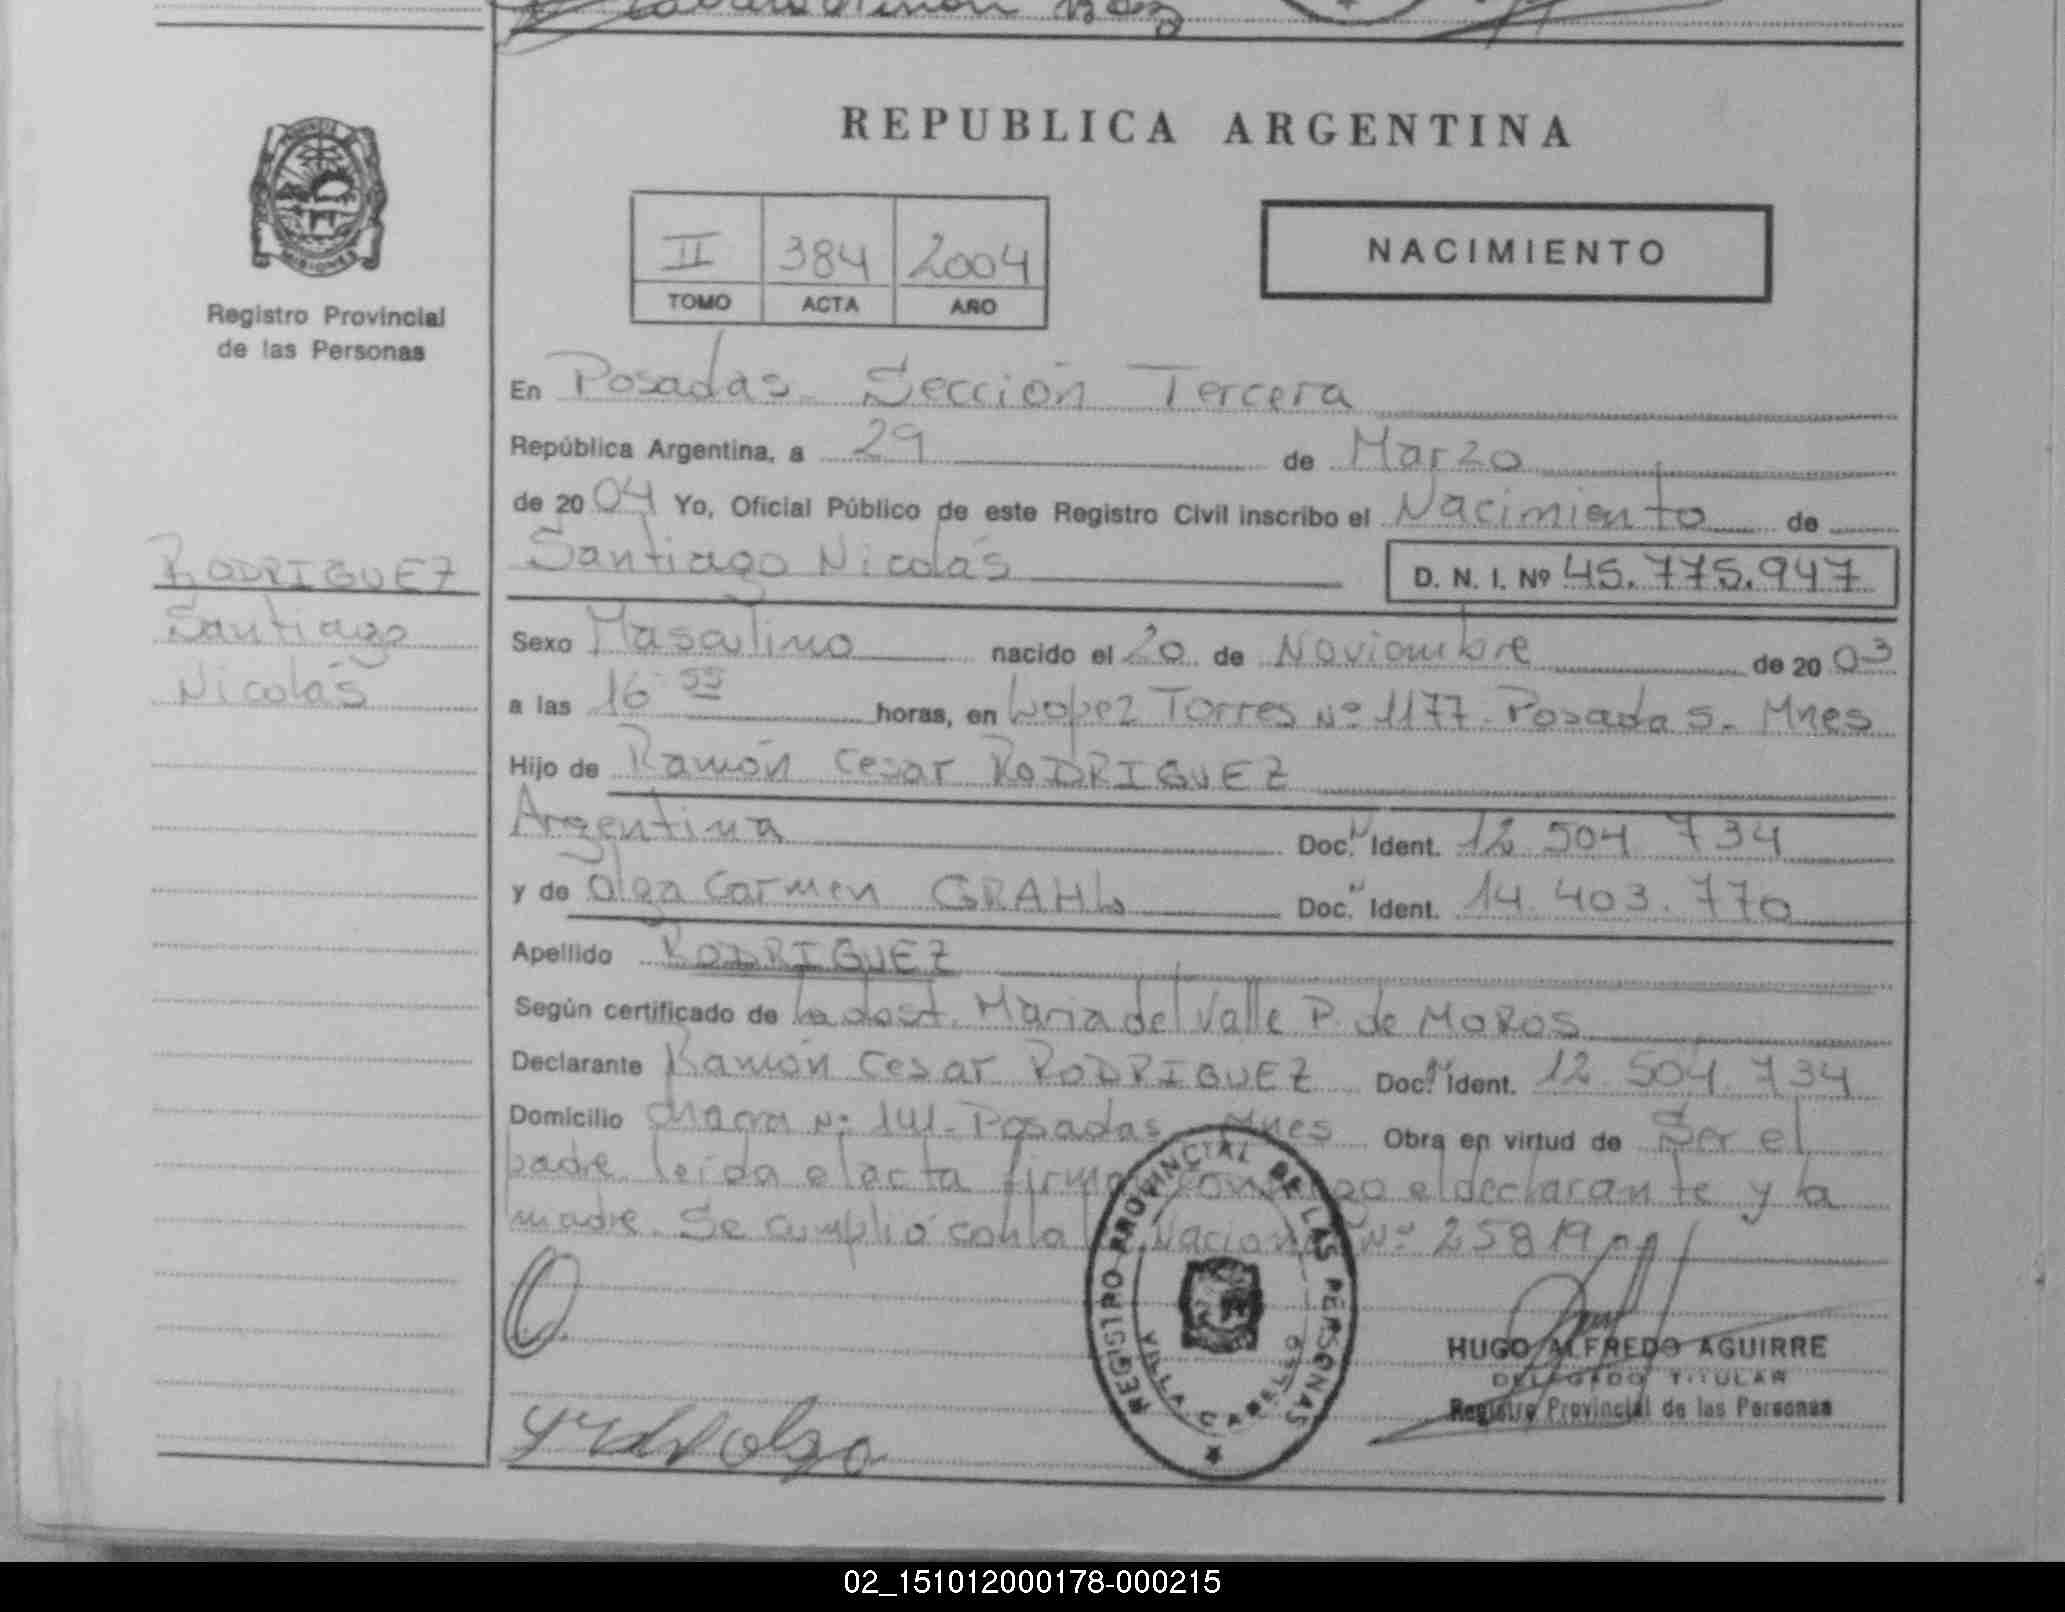 REPUBLICA ARGENTINA
MISIONES
Registro Provincial
de las Personas
II 384 2004
TOMO ACTA AÑO
NACIMIENTO
En Posadas - Sección Tercera
República Argentina, a 29 de Marzo
de 2004 Yo, Oficial Público de este Registro Civil inscribo el Nacimiento de
Santiago Nicolás D. N. I. Nº 45.775.947
RODRIGUEZ
Santiago
Nicolás
Sexo Masculino nacido el 20 de Noviembre de 2003
a las 16 55 horas, en Lopez Torres Nº 1177. Posadas - Mnes
Hijo de Ramón Cesar RODRIGUEZ
Argentina Doc. N Ident. 12.504.734
y de Olga Carmen GRAHL Doc. N Ident. 14.403.770
Apellido RODRIGUEZ
Según certificado de la dost. Maria del Valle P. de MOROS
Declarante Ramón Cesar RODRIGUEZ Doc. N Ident. 12.504.734
Domicilio chacra Nº 141 - Posadas Mnes Obra en virtud de Ser el
padre leída el acta firma conmigo el declarante y la
madre. Se cumplió con la Nacional Nº 25819
REGISTRO PROVINCIAL DE LAS PERSONAS
VILLA CABELLO
HUGO ALFREDO AGUIRRE
DELEGADO TITULAR
Registro Provincial de las Personas
02_151012000178-000215